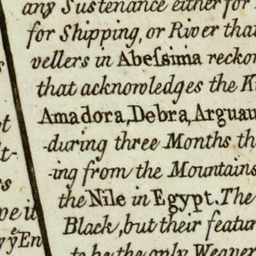 any Sustenance either for
for Shipping, or River that
vellers in Abeſsima reckon
that acknowledges the K
Amadora, Debra, Arguau
during three Months th
-ing from the Mountains
the Nile in Egypt. The
Black, but their featur
to be the only Weaper